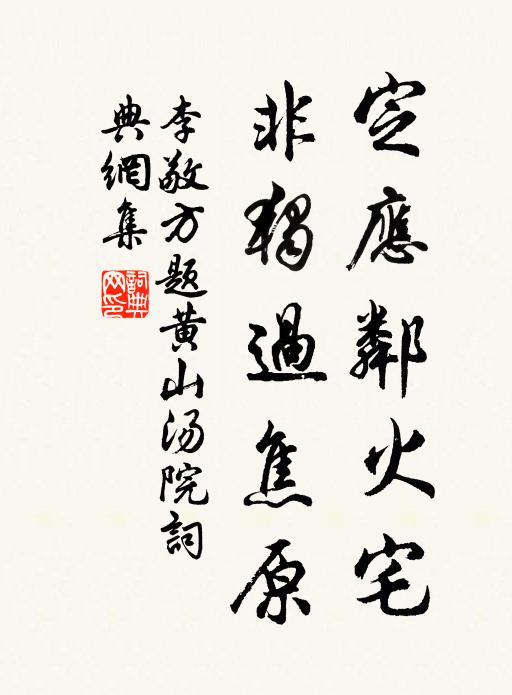 定應鄰火宅
非獨過焦原
李敬方題黄山汤院詞
典網集
詞典
网印